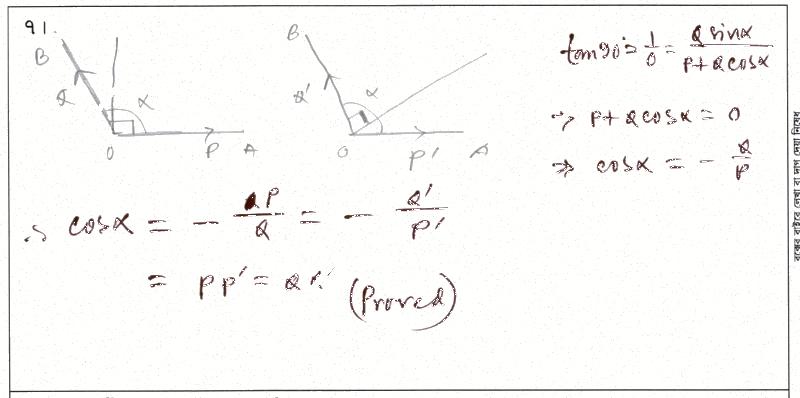 91.
B
Q
α
O
P
A
B
Q'
α
O
P'
A
tan90° = 1/0 = Q sinα / P+Qcosα
⇒ P+Qcosα = 0
⇒ cosα = - Q/P
∴ cosα = - QP/Q = - Q'/P'
= PP' = QQ' (Proved)
বক্সের বাইরে লেখা বা দাগ দেয়া নিষেধ